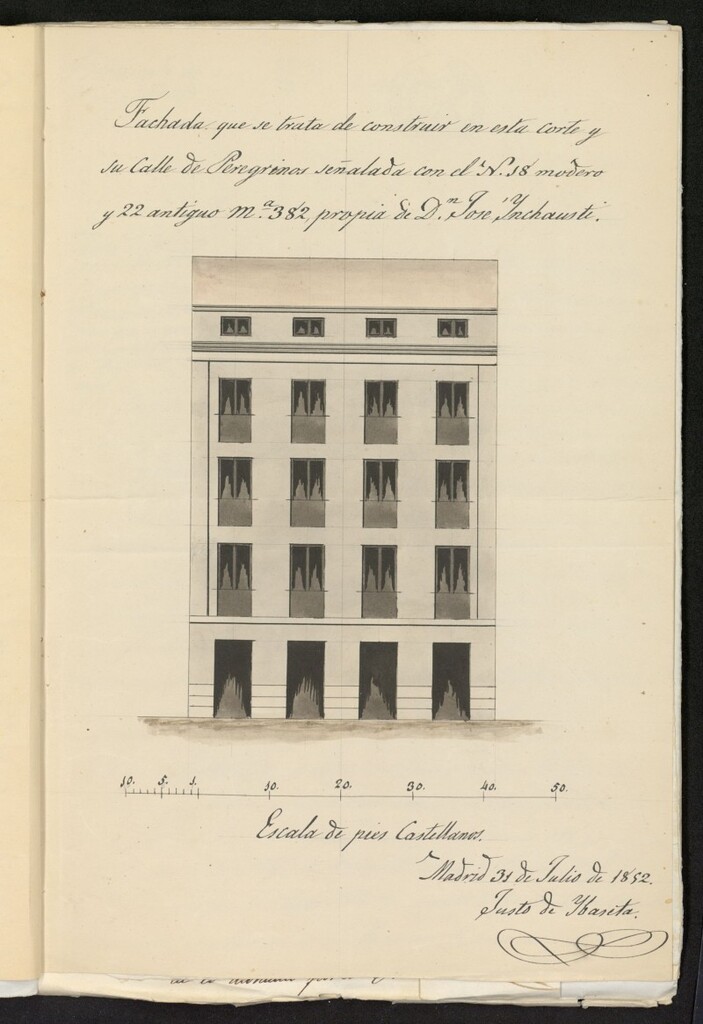 Fachada que se trata de construir en esta corte y
su Calle de Peregrinos señalada con el N.º 18 modero
y 22 antiguo M.ª 382, propia de D.n Jose Ynchausti.
10. 5. 1. 10. 20. 30. 40. 50.
Escala de pies Castellanos.
Madrid 31 de Julio de 1852.
Justo de Ybaseta.